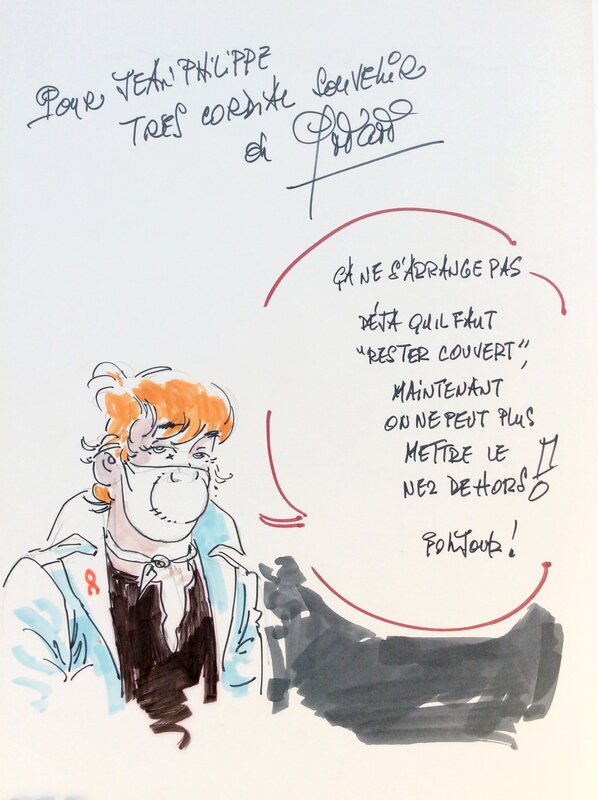 POUR JEAN PHILIPPE
TRES CORDIAL SOUVENIR
ÇA NE S'ARRANGE PAS
DÉJA QU'IL FAUT
"RESTER COUVERT",
MAINTENANT
ON NE PEUT PLUS
METTRE LE
NEZ DEHORS!
BONJOUR!